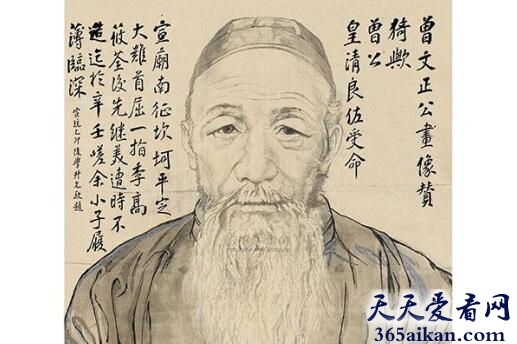 曾文正公畫像贊
猗歟
曾公
皇清良佐受命
宣廟南征坎坷平定
大難首屈一指季高
筱荃後先繼美遭時不
造迄於辛壬嗟余小子履
薄臨深
宣統乙卯後學升允敬題
天天爱看网
365aikan.com